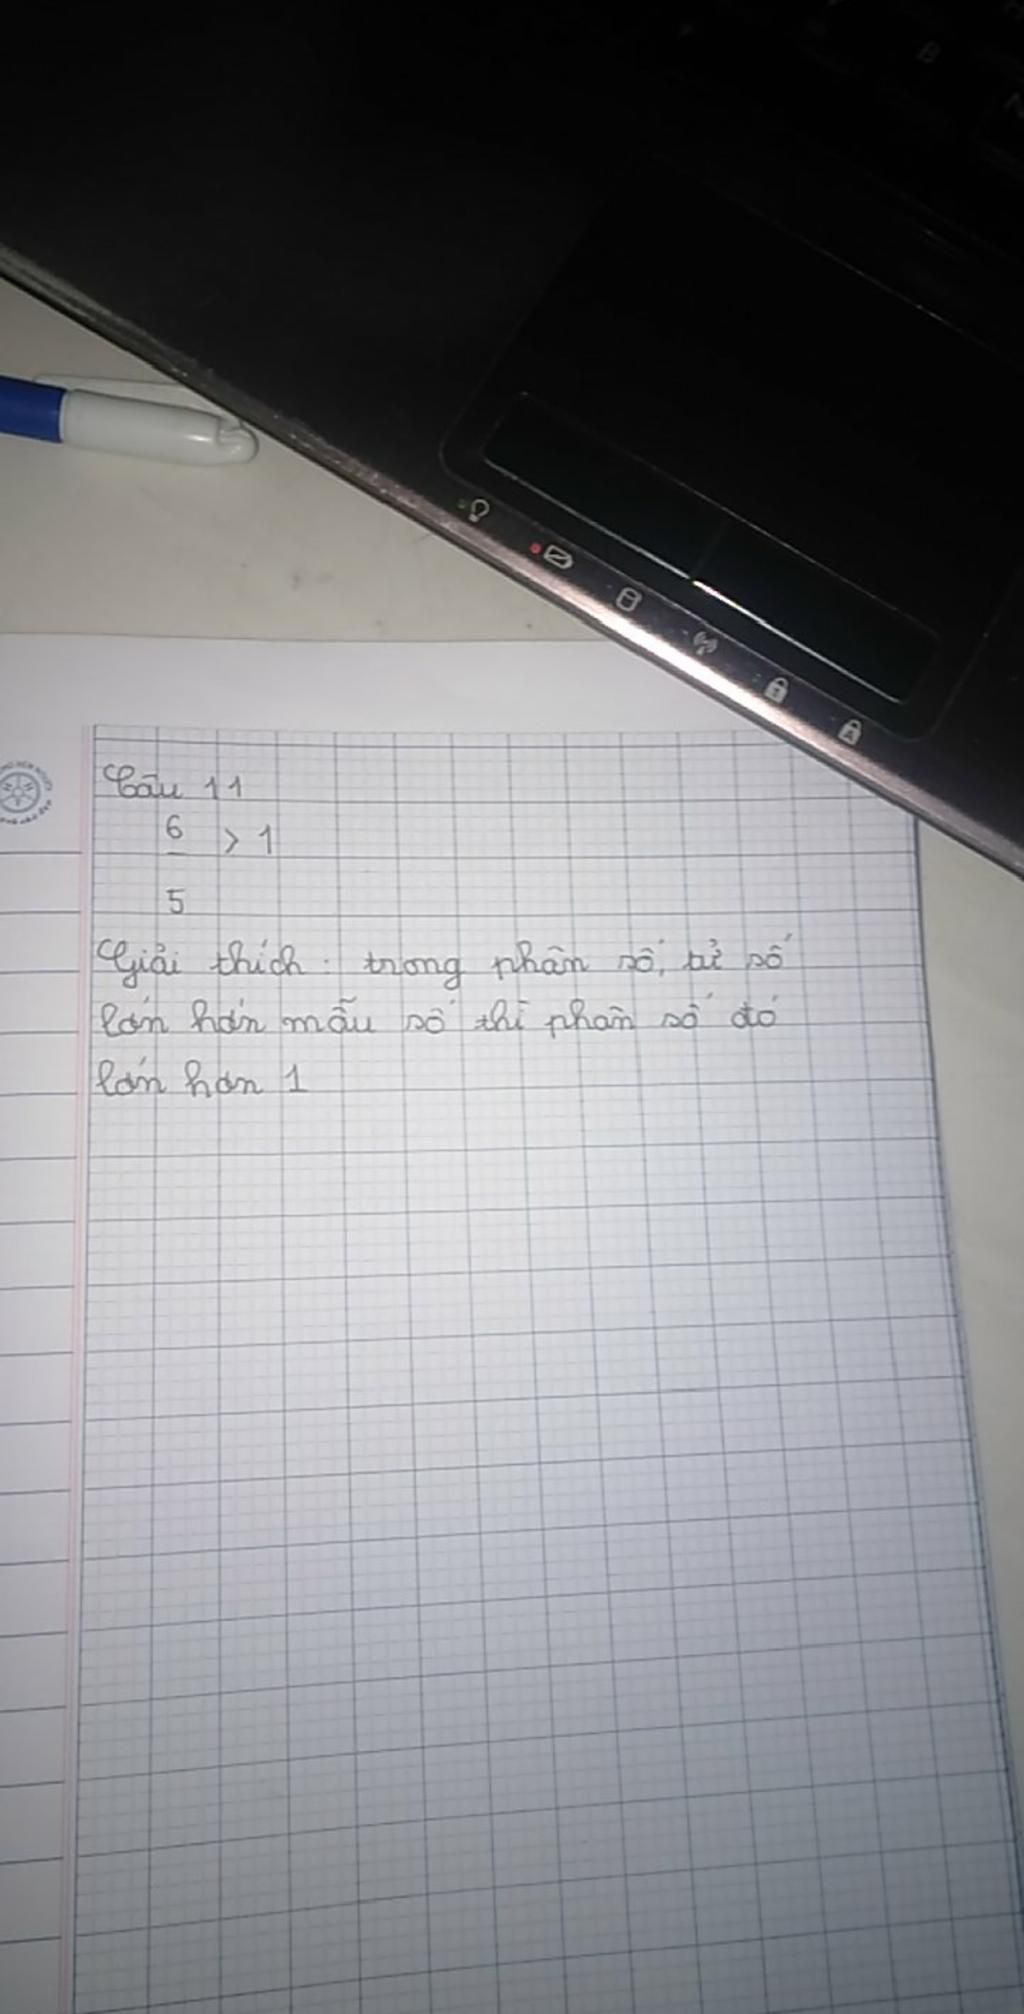 Câu 11
6 > 1
5
Giải thích: trong phân số, tử số
lớn hơn mẫu số thì phân số đó
lớn hơn 1